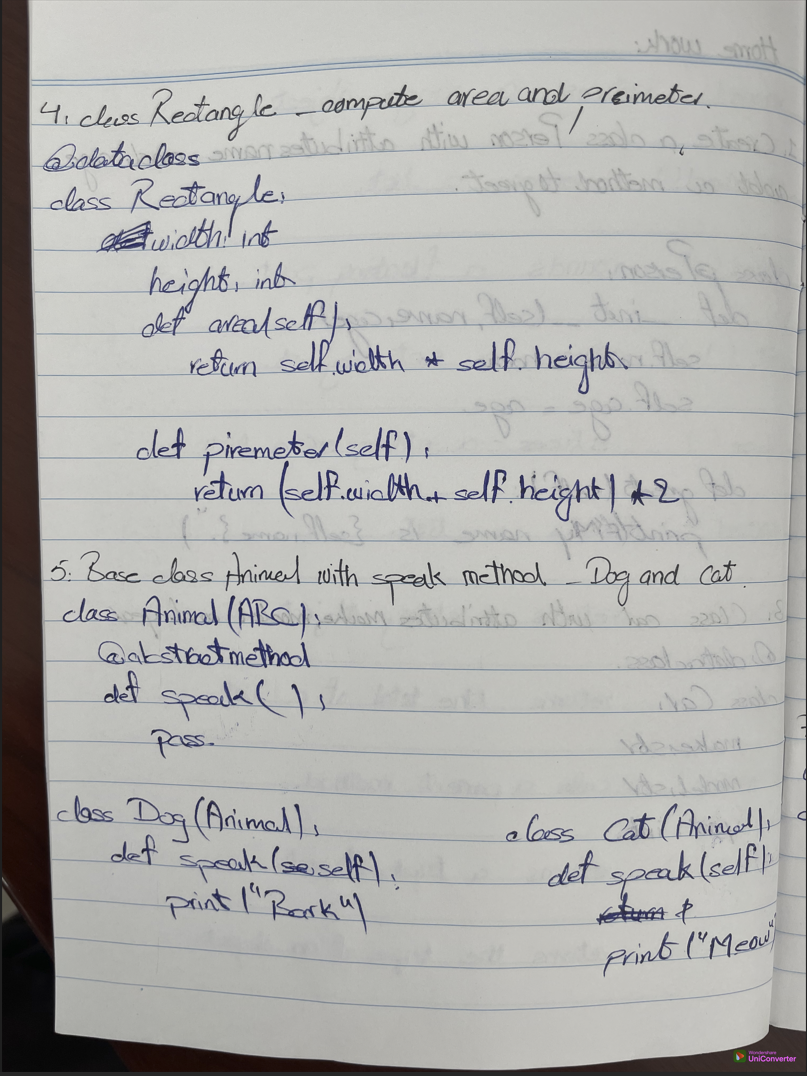 4. class Rectangle - compute area and preimeter.
@dataclass
class Rectangle:
width: int
height: int
def area(self):
return self.width * self.height
def piremeter(self):
return (self.width + self.height) * 2
5. Base class Animal with speak method - Dog and Cat.
class Animal(ABC):
@abstractmethod
def speak( ):
pass.
class Dog(Animal):
def speak(se self):
print("Bark")
class Cat(Animal):
def speak(self):
print("Meow"
Wondershare
UniConverter